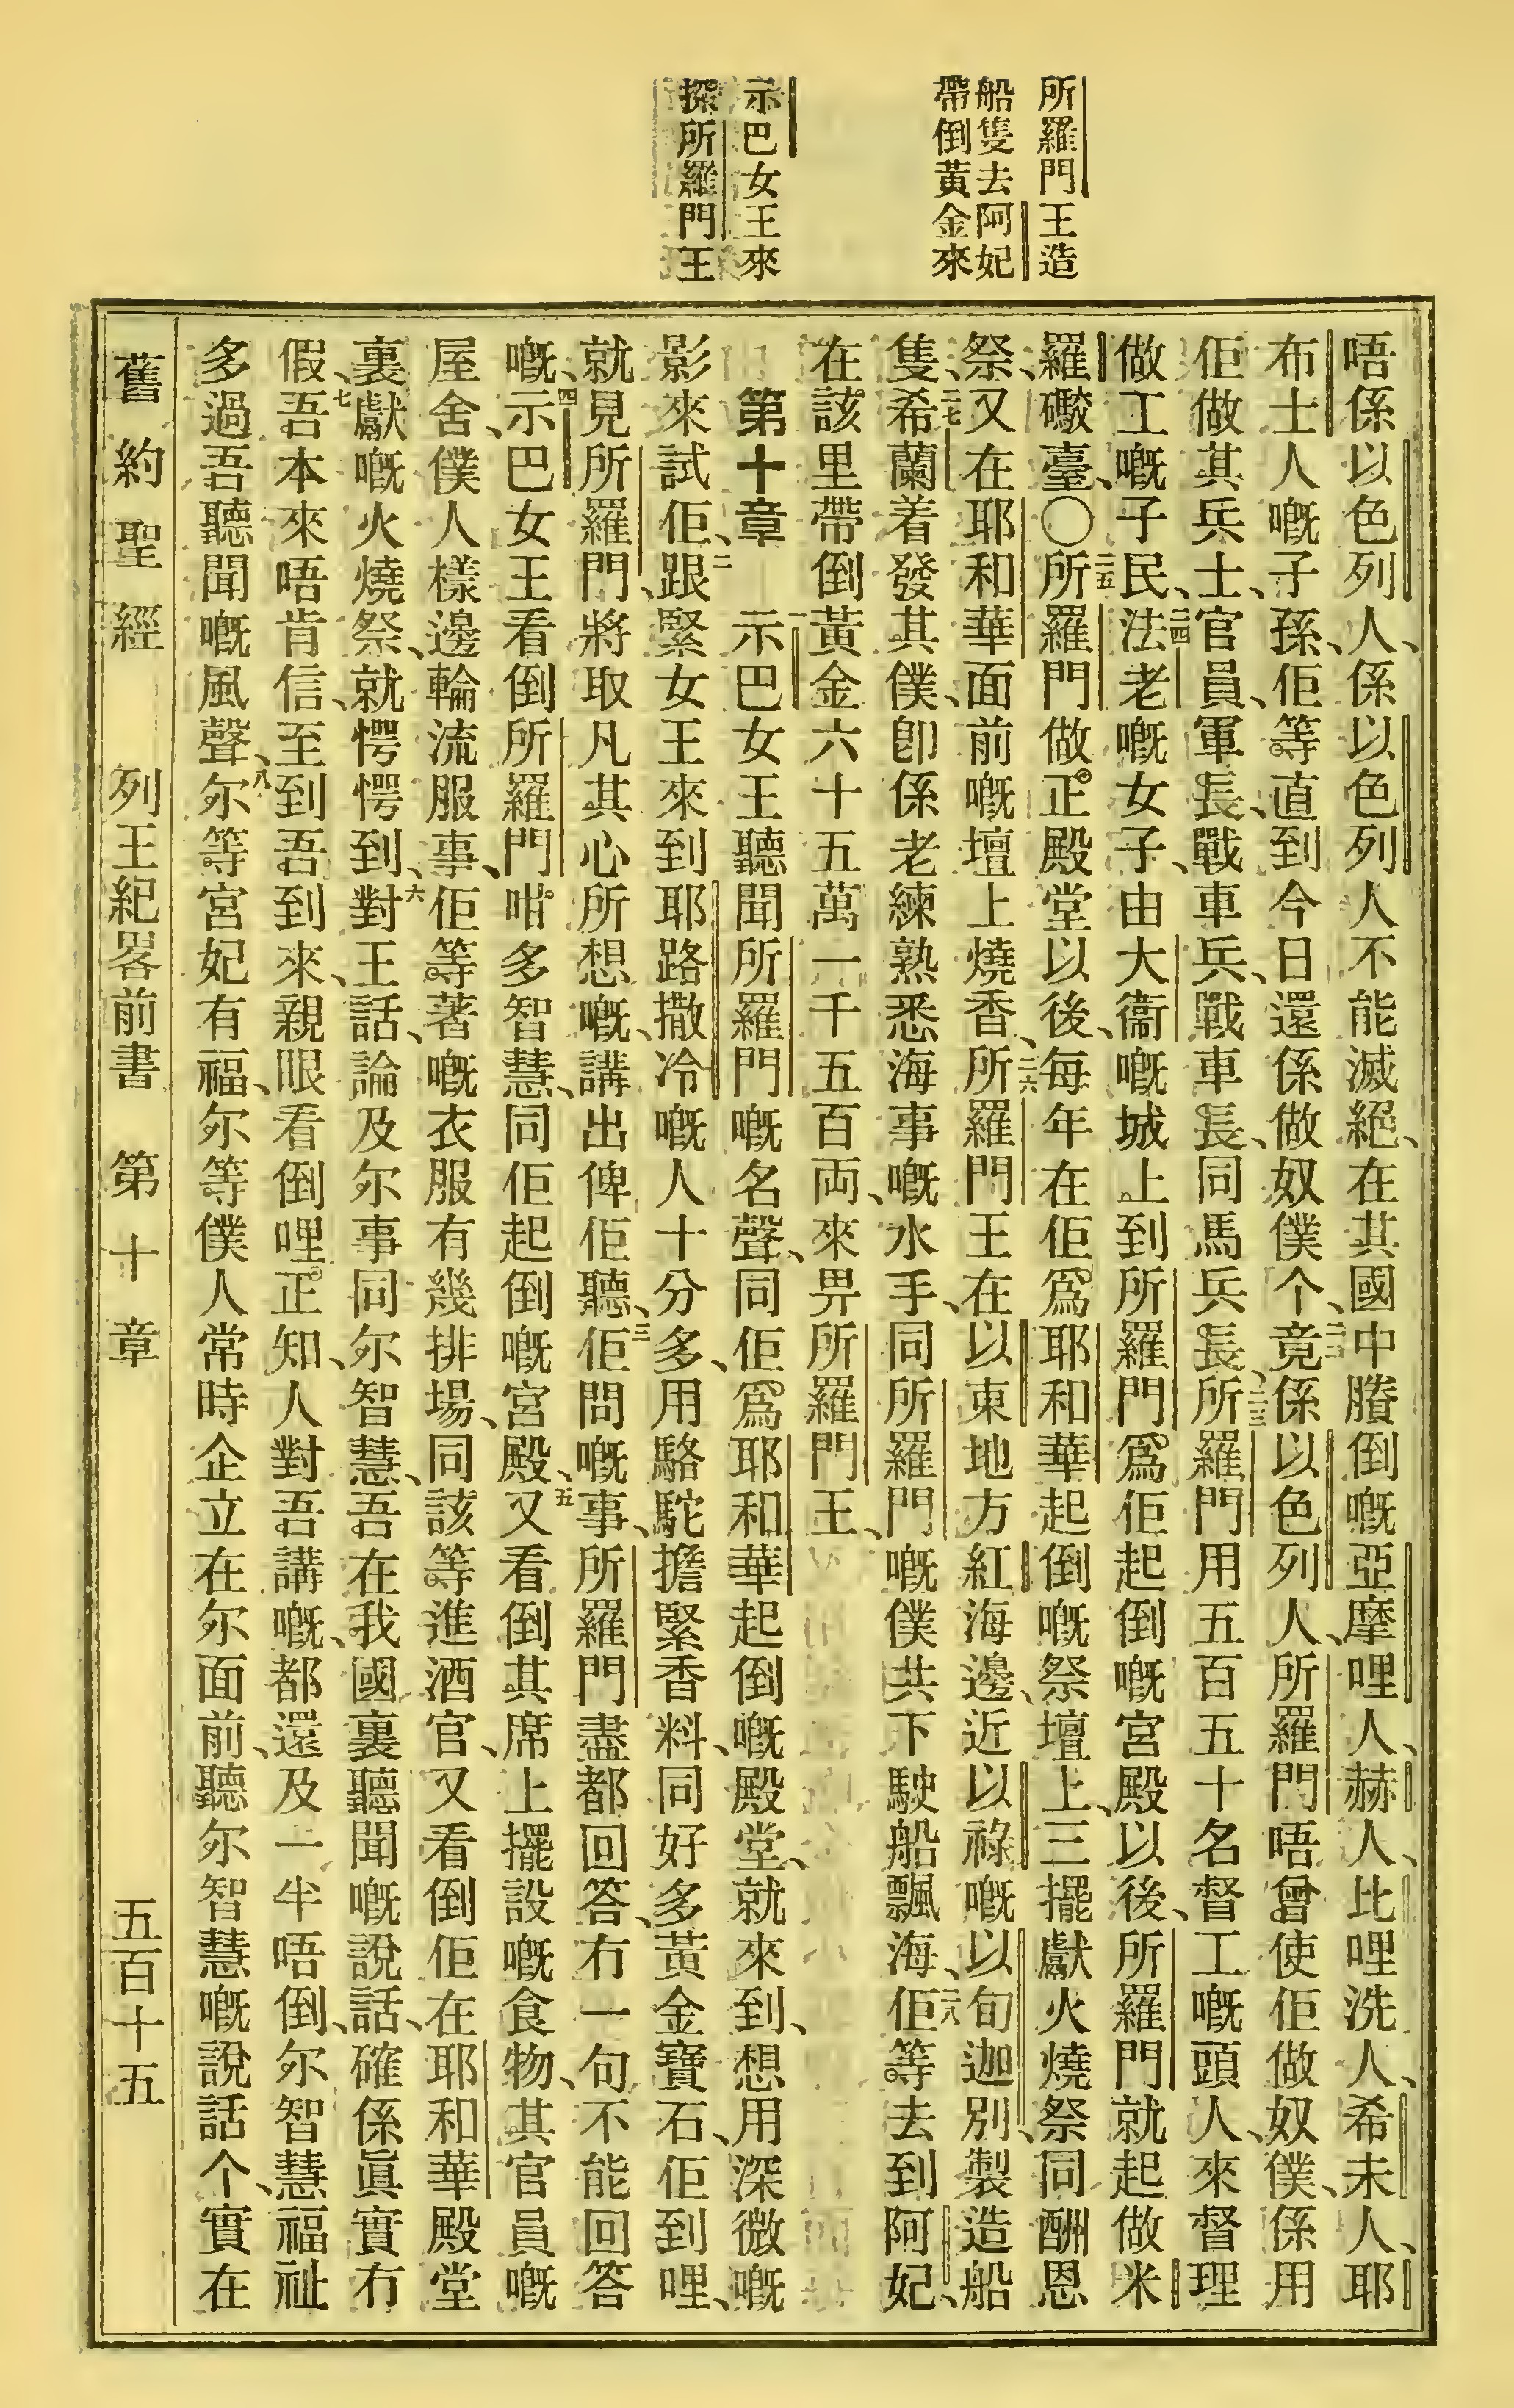 所羅門王造
船隻去阿妃
帶倒黃金來
示巴女王來
探所羅門王
唔係以色列人、係以色列人不能滅絕、在其國中賸倒嘅亞摩哩人、赫人、比哩洗人、希未人、耶
布士人嘅子孫、佢等直到今日還係做奴僕个、二二竟係以色列人、所羅門唔曾使佢做奴僕、係用
佢做其兵士、官員、軍長、戰車兵、戰車長、同馬兵長、二三所羅門用五百五十名督工嘅頭人、來督理
做工嘅子民、二四法老嘅女子、由大衞嘅城上到所羅門爲佢起倒嘅宮殿以後、所羅門就起做米
羅礮臺、〇二五所羅門做正殿堂以後、每年在佢爲耶和華起倒嘅祭壇上、三擺獻火燒祭同酬恩
祭、又在耶和華面前嘅壇上燒香、二六所羅門王在以東地方紅海邊、近以祿嘅以旬迦別、製造船
隻、二七希蘭着發其僕、卽係老練熟悉海事嘅水手、同所羅門嘅僕共下駛船飄海、二八佢等去到阿妃、
在該里帶倒黃金六十五萬一千五百両、來畀所羅門王、
第十章 一示巴女王聽聞所羅門嘅名聲、同佢爲耶和華起倒嘅殿堂、就來到、想用深微嘅
影來試佢、二跟緊女王來到耶路撒冷嘅人十分多、用駱駝擔緊香料、同好多黃金寶石、佢到哩、
就見所羅門、將取凡其心所想嘅、講出俾佢聽、三佢問嘅事、所羅門盡都回答、冇一句不能回答
嘅、四示巴女王看倒所羅門咁多智慧、同佢起倒嘅宮殿、五又看倒其席上擺設嘅食物、其官員嘅
屋舍、僕人樣邊輪流服事、佢等著嘅衣服有幾排場、同該等進酒官、又看倒佢在耶和華殿堂
裏獻嘅火燒祭、就愕愕到、六對王話、論及尔事同尔智慧、吾在我國裏聽聞嘅說話、確係眞實冇
假、七吾本來唔肯信、至到吾到來、親眼看倒哩正知、人對吾講嘅、都還及一半唔倒、尔智慧福祉
多過吾聽聞嘅風聲、八尔等宮妃有福、尔等僕人常時企立在尔面前、聽尔智慧嘅說話个、實在
舊約聖經 列王紀畧前書 第十章 五百十五